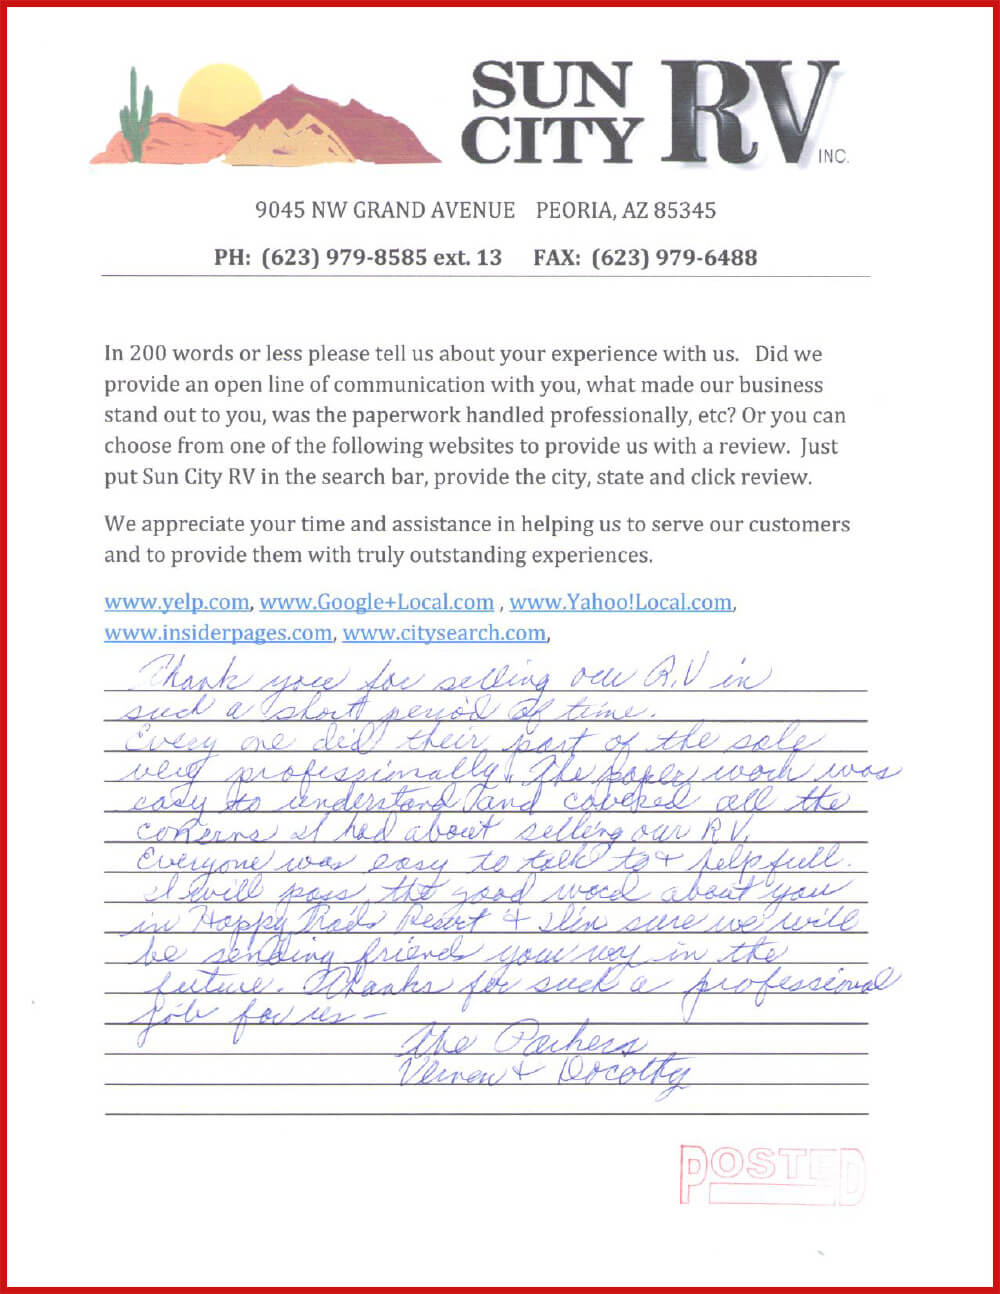 SUN
CITY RV INC.
9045 NW GRAND AVENUE PEORIA, AZ 85345
PH: (623) 979-8585 ext. 13 FAX: (623) 979-6488
In 200 words or less please tell us about your experience with us. Did we
provide an open line of communication with you, what made our business
stand out to you, was the paperwork handled professionally, etc? Or you can
choose from one of the following websites to provide us with a review. Just
put Sun City RV in the search bar, provide the city, state and click review.
We appreciate your time and assistance in helping us to serve our customers
and to provide them with truly outstanding experiences.
www.yelp.com, www.Google+Local.com , www.Yahoo!Local.com,
www.insiderpages.com, www.citysearch.com,
Thank you for selling our R.V in
such a short period of time.
Every one did their part of the sale
very professionally. The paper work was
easy to understand and covered all the
conerns I had about selling our R V.
Everyone was easy to talk to & helpfull.
I will pass the good word about you
in Happy Trails Resort & I'm sure we will
be sending friends your way in the
future. Thanks for such a professional
job for us -
The Parkers
Vernon & Dorothy
POSTED